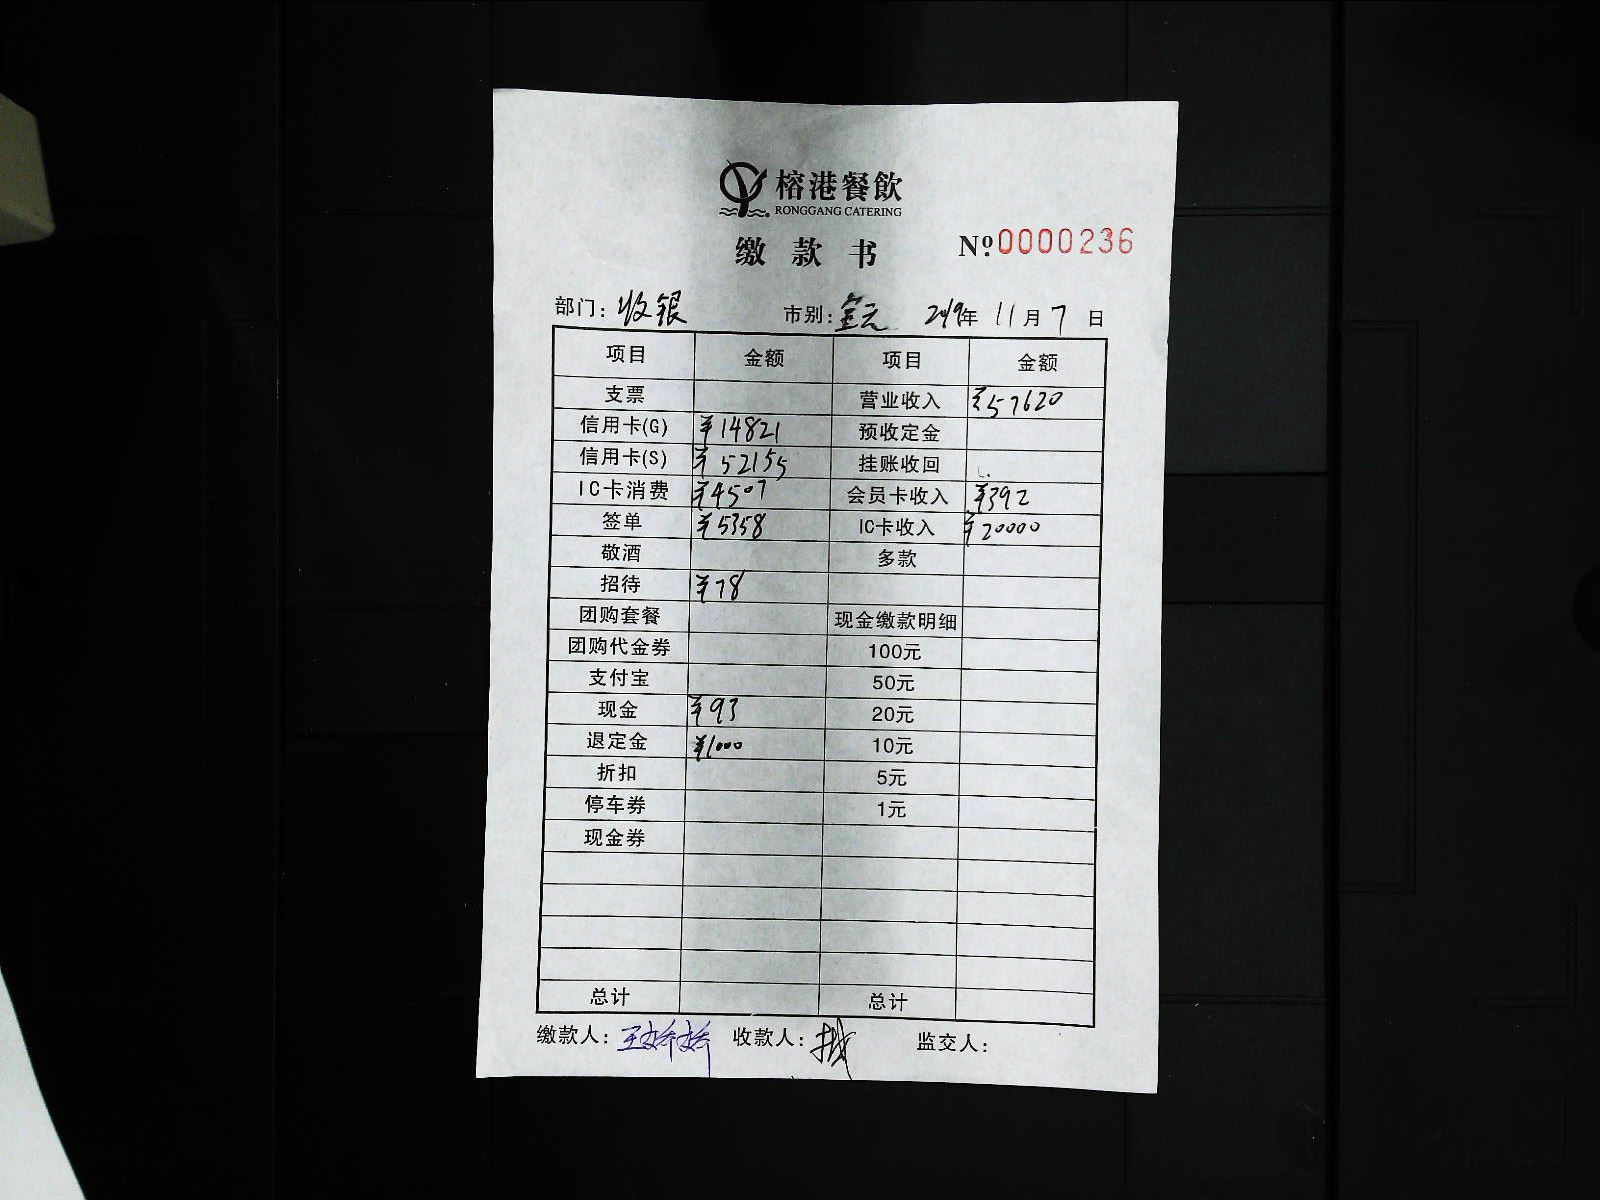 榕港餐飲
RONGGANG CATERING
缴款书 Nº:0000236
部门: 收银 市别: 2019年 11月 7日
项目 金额 项目 金额
支票 营业收入 ¥57620
信用卡(G) ¥14821 预收定金
信用卡(S) ¥52155 挂账收回
IC卡消费 ¥4507 会员卡收入 ¥392
签单 ¥5358 IC卡收入 ¥20000
敬酒 多款
招待 ¥78
团购套餐 现金缴款明细
团购代金券 100元
支付宝 50元
现金 ¥93 20元
退定金 ¥1000 10元
折扣 5元
停车券 1元
现金券
总计 总计
缴款人: 王娇娇 收款人: 监交人: